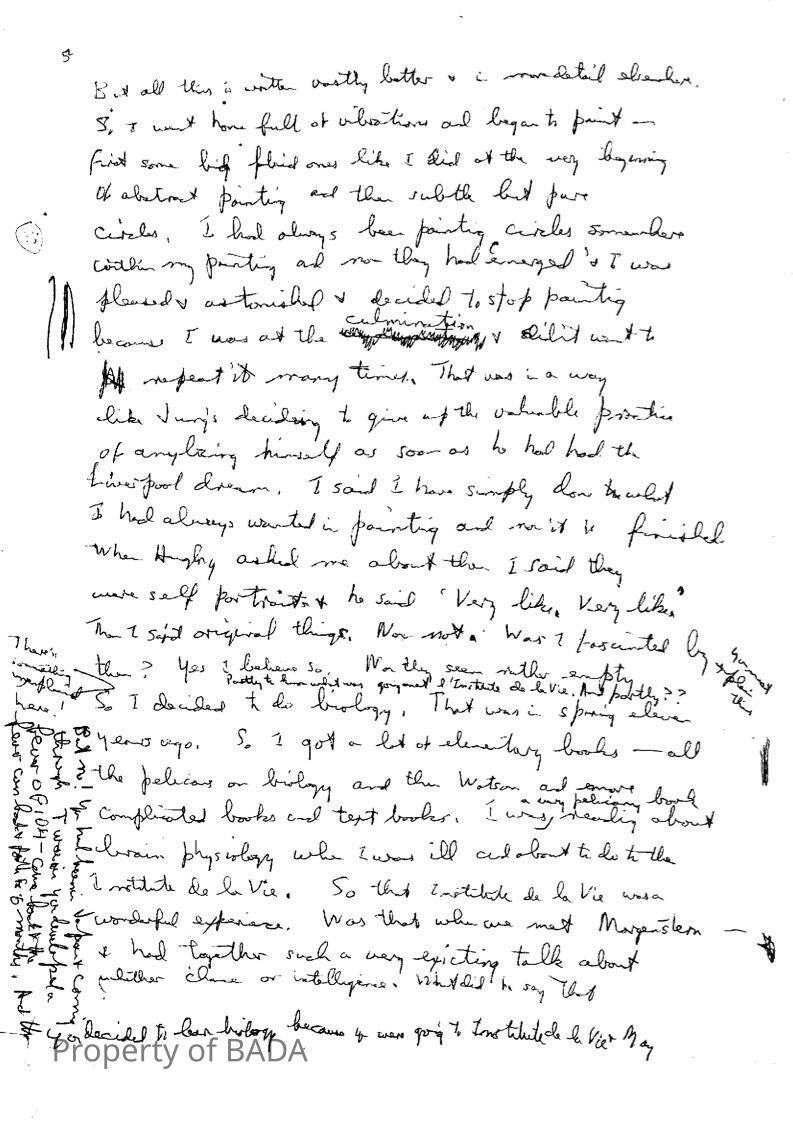 5
But all this is written vastly better & in more detail elsewhere.
So I went home full of vibrations and began to paint —
first some big fluid ones like I did at the very beginning
of abstract painting and then subtle but pure
circles. I had always been painting circles somewhere
within my painting and now they had 'emerged' & I was
pleased & astonished & decided to stop painting
because I was at the culmination & didn't want to
repeat it many times. That was in a way
like Jung's deciding to give up the valuable practice
of analyzing himself as soon as he had had the
Liverpool dream. I said I have simply done what
I had always wanted in painting and now it is finished
When asked me about them I said they
were self portraits & he said 'Very like, Very like'
Then I said original things. Now not. Was I fascinated by
them? Yes I believe so. Now they seem rather empty
you must explain this
There's something unexplained here!
Partly to know what was going on at l'Institute de la Vie. And partly??
So I decided to do biology. That was in spring eleven
years ago. So I got a lot of elementary books — all
the pelicans on biology and then Watson and more
complicated books and text books. I was reading about
a very pelicany book
brain physiology when I was ill and about to go to the
Institute de la Vie. So that Institute de la Vie was a
wonderful experience. Was that when we met Morgenstern —
& had together such a very exciting talk about
whether chance or intelligence. What did he say that
But no! You had been
through you developed a
fever of 104 — came back & the
fever came back & forth for 8 months. And then
you decided to learn biology because you were going to Institute de la Vie May
Property of BADA